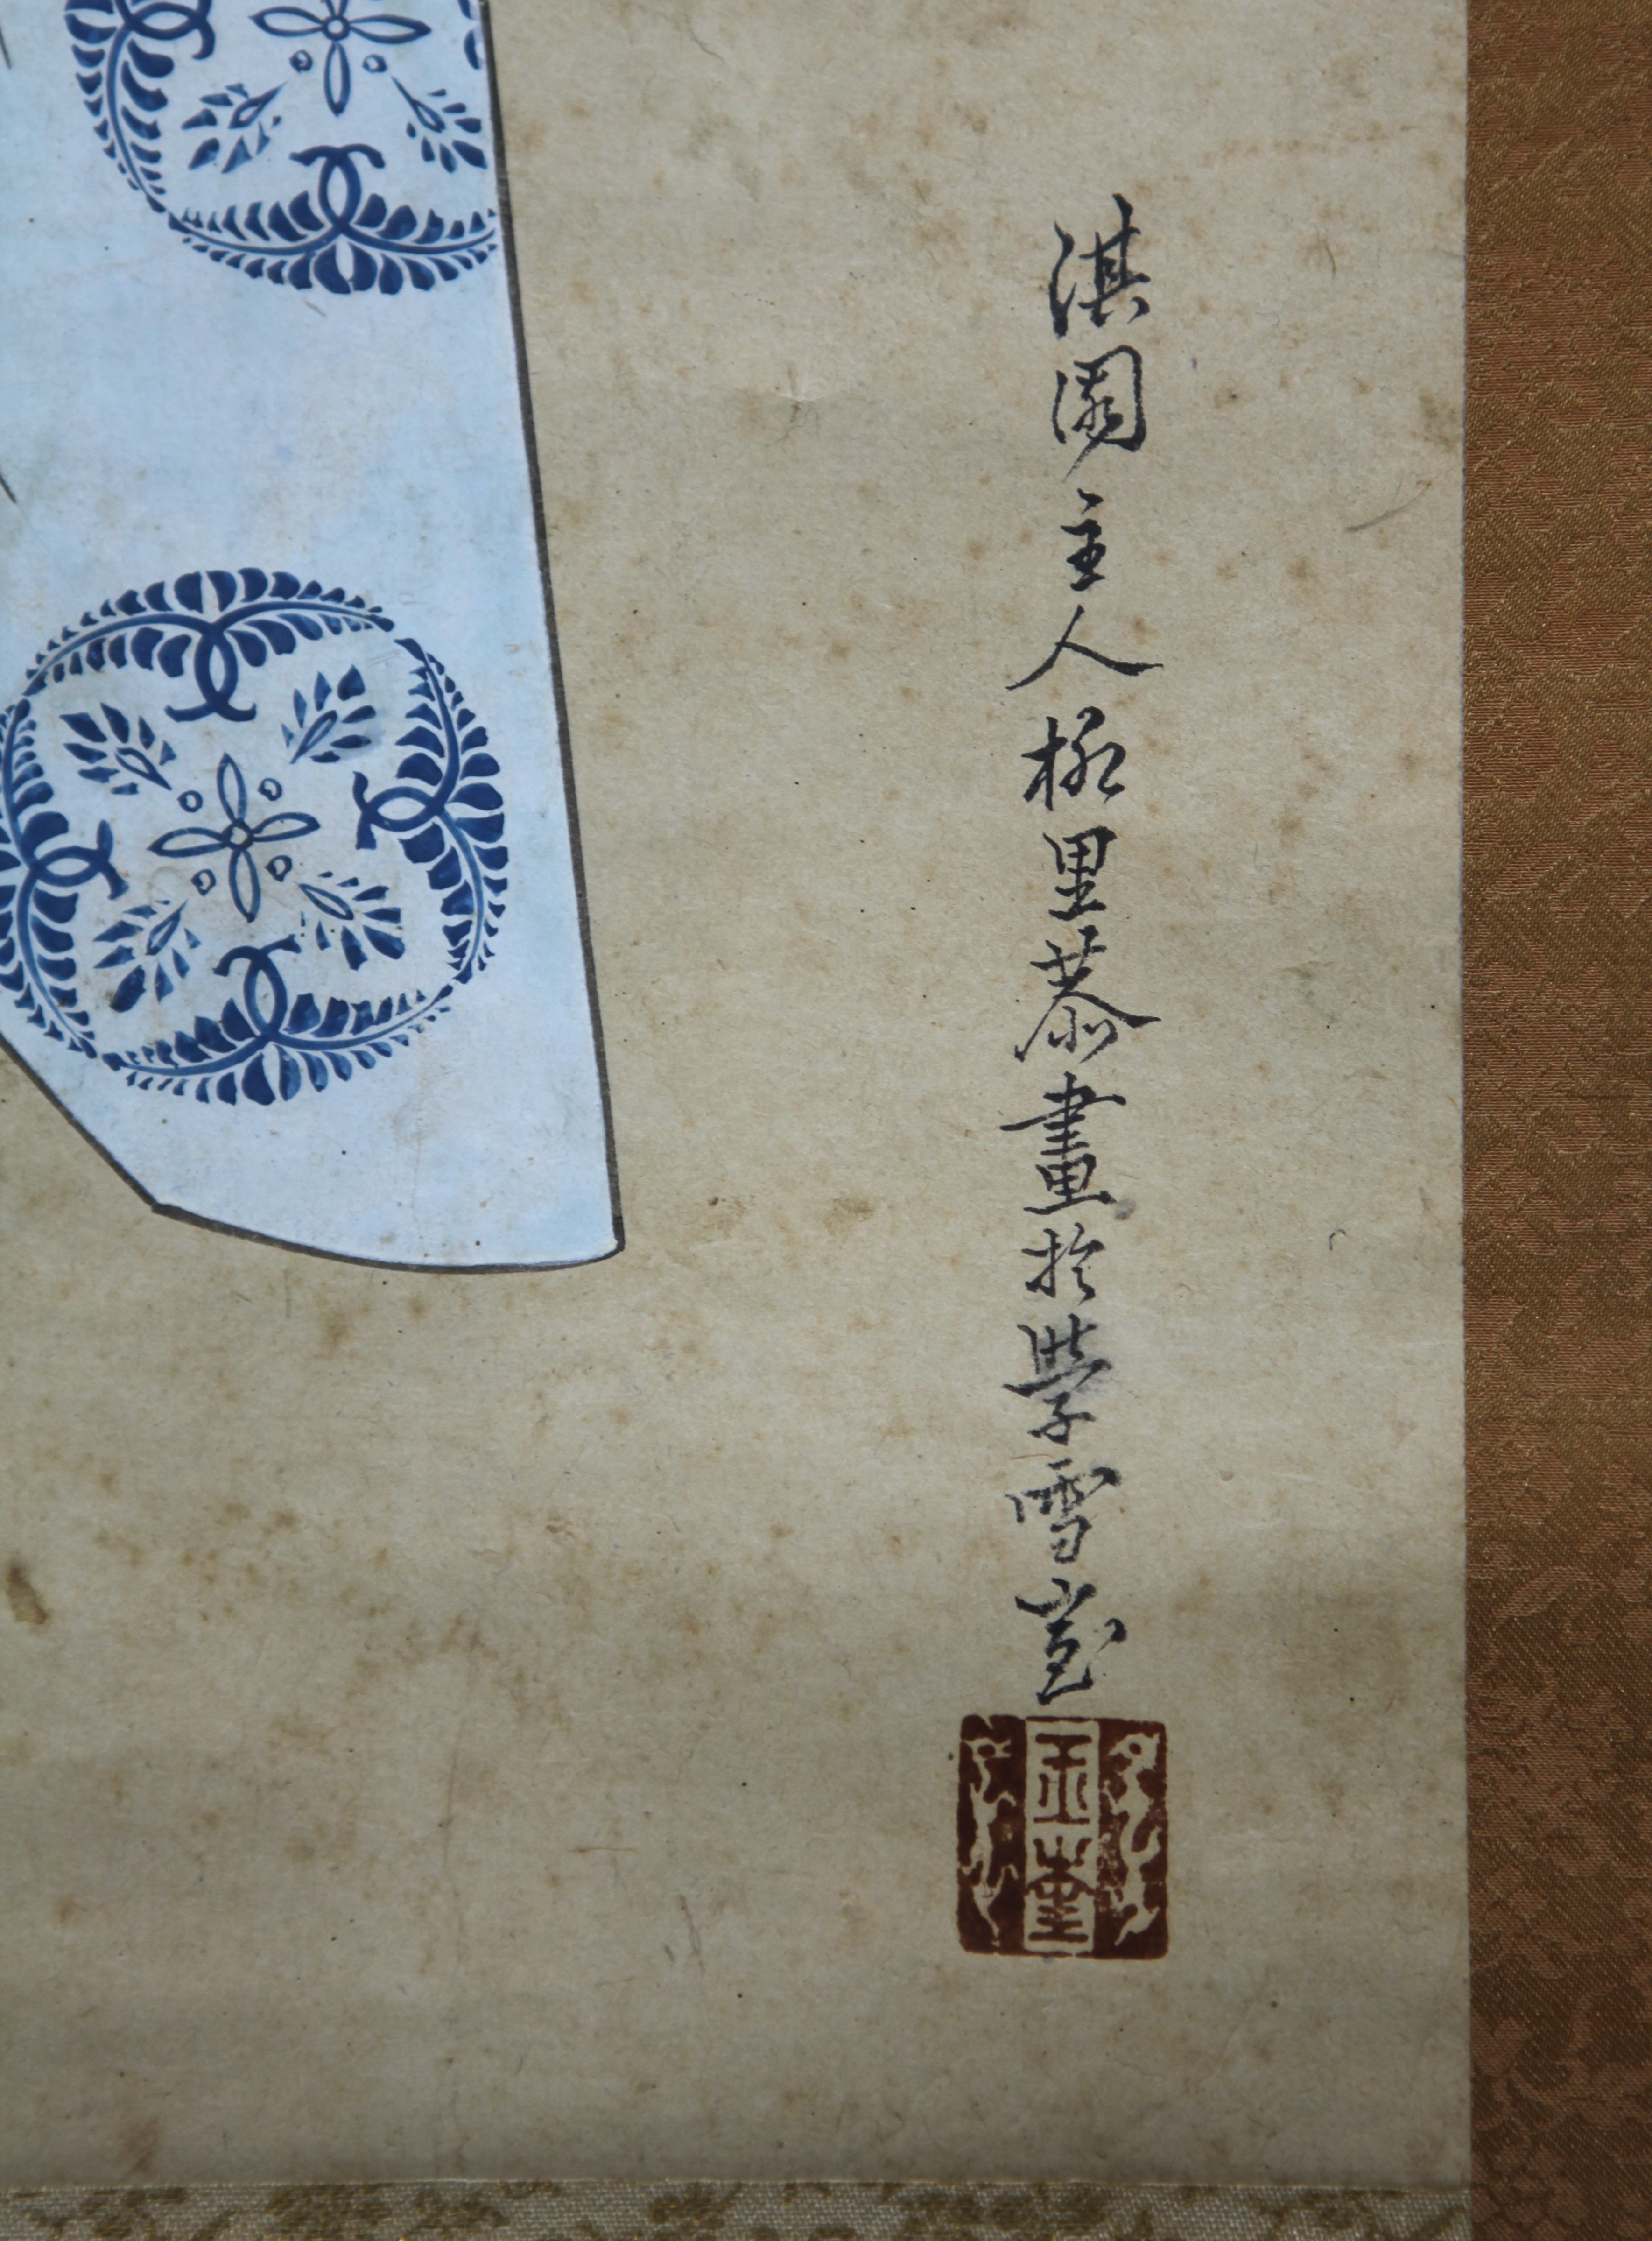 淇園主人柳里恭畫於學雪堂